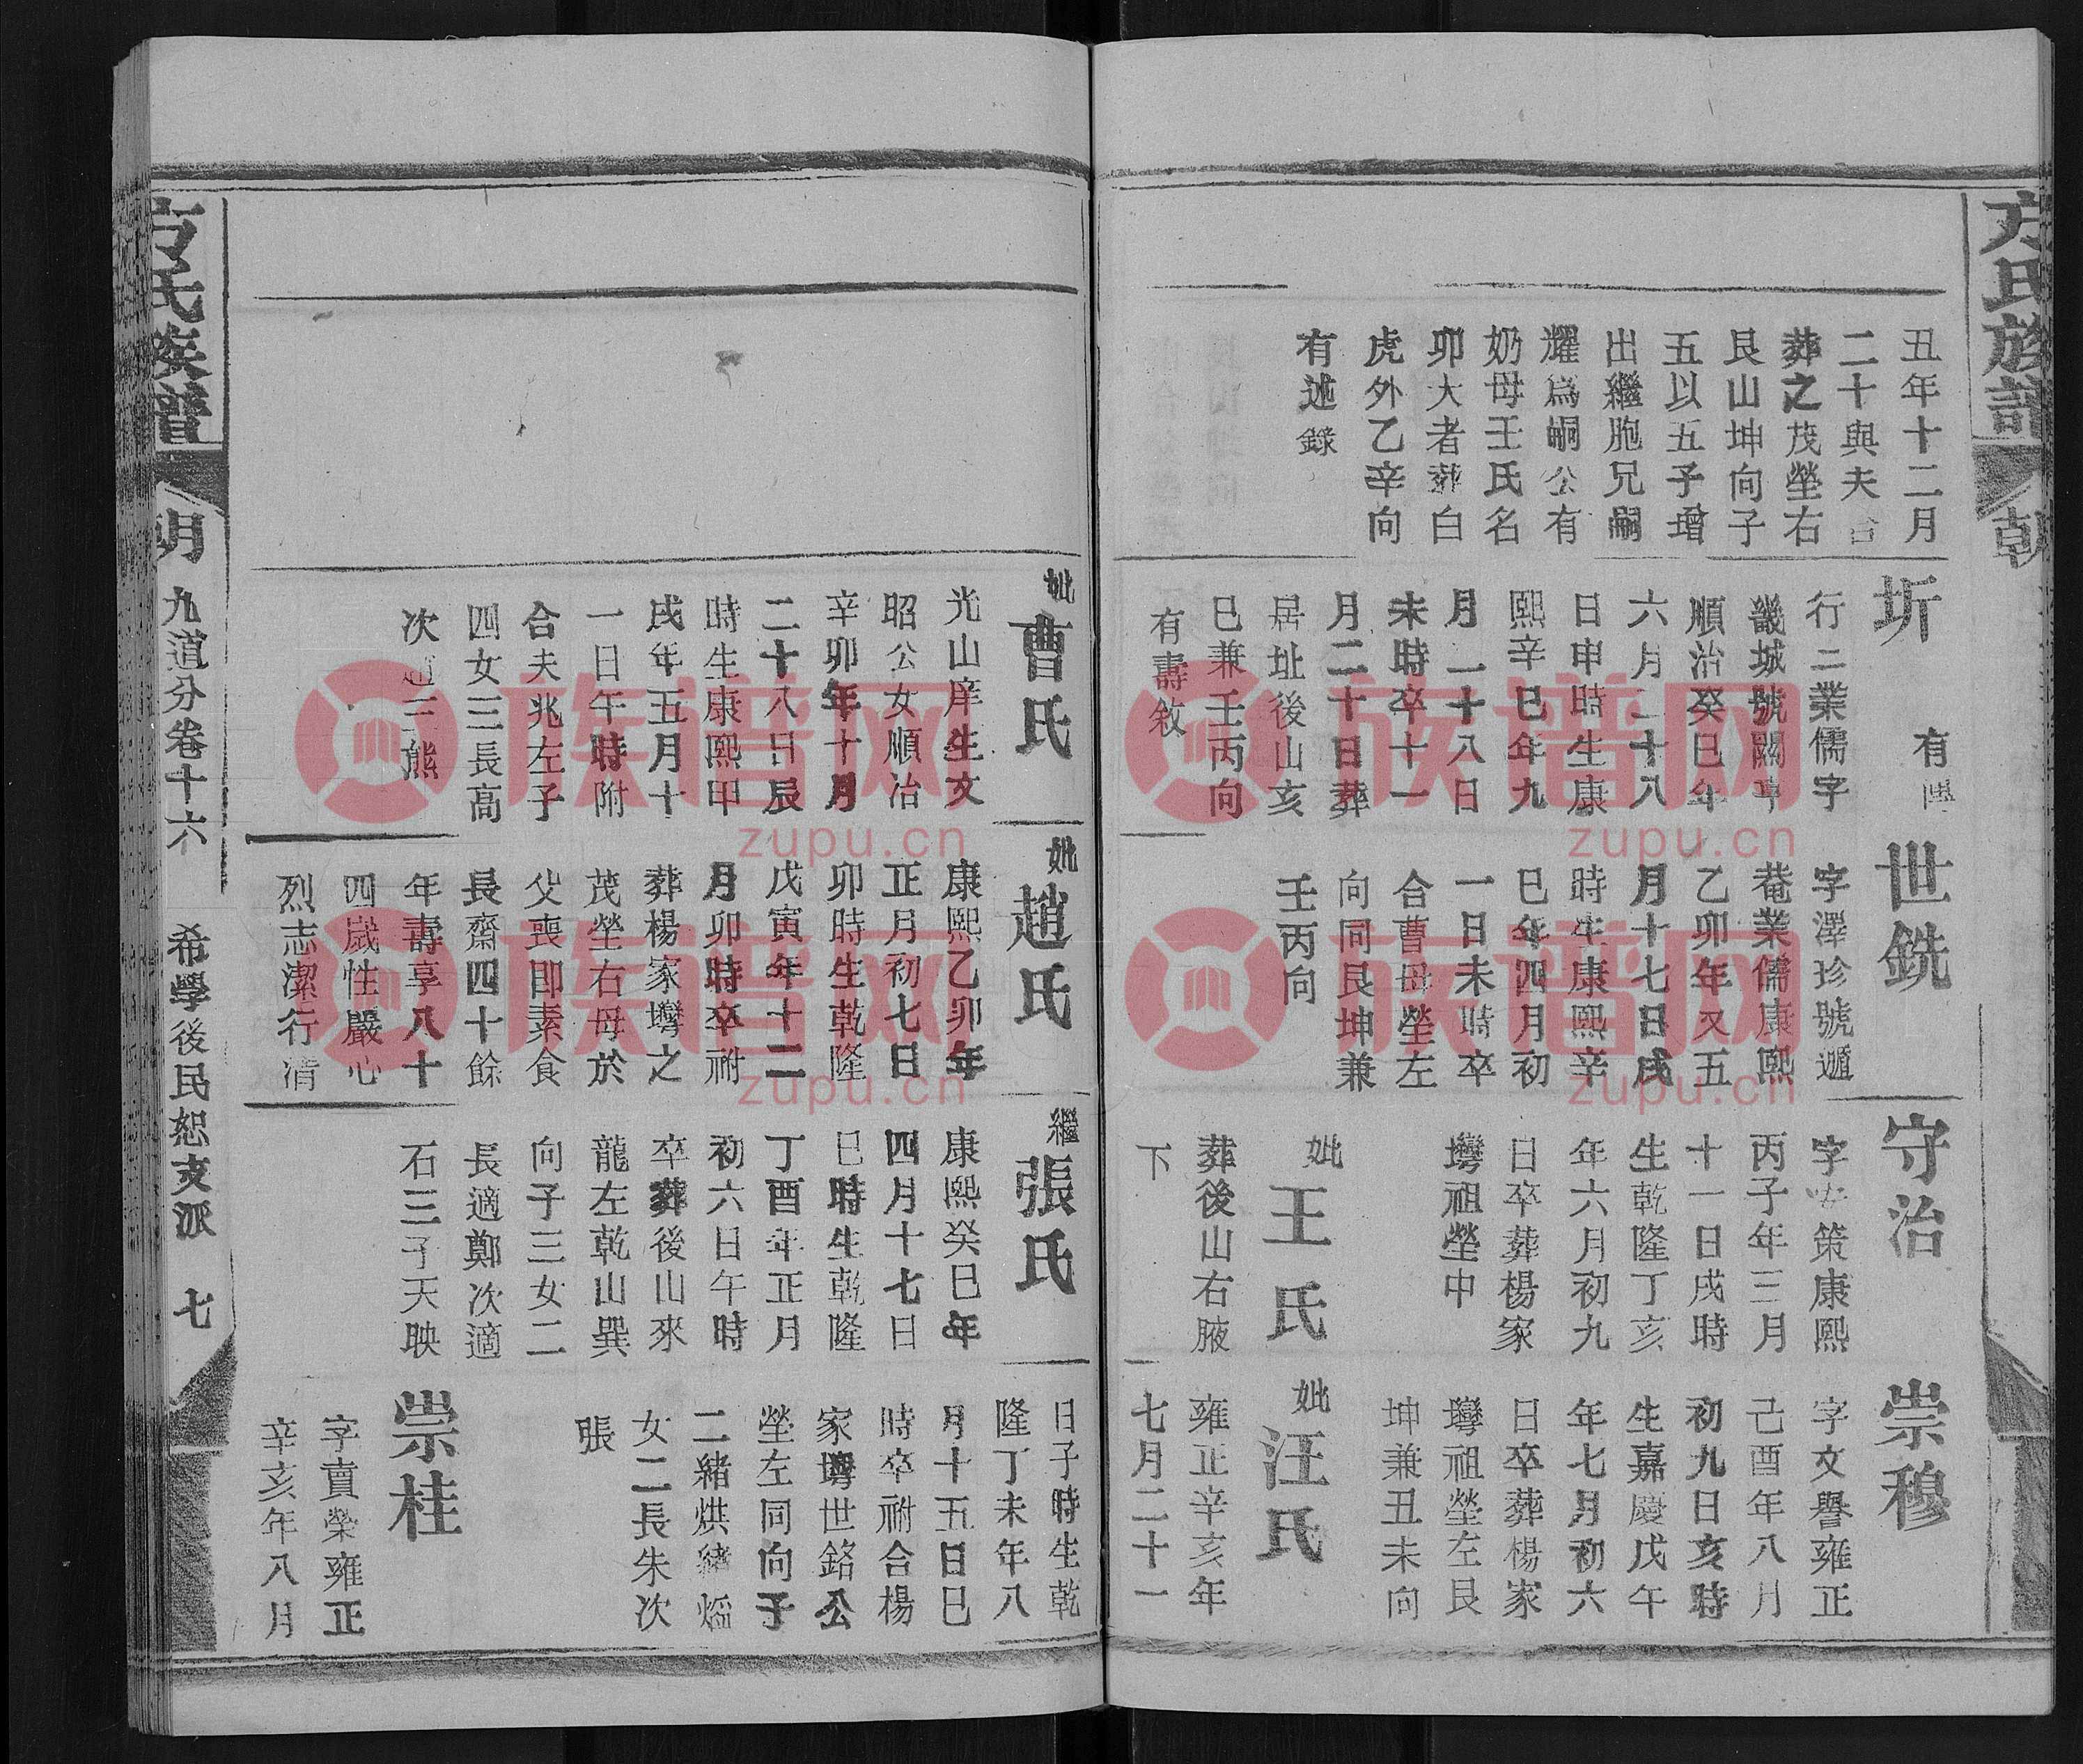 方氏族譜
朝
丑年十二月
二十與夫合
葬之茂塋右
艮山坤向子
五以五子增
出繼胞兄嗣
耀爲嗣公有
奶母王氏名
卯大者葬白
虎外乙辛向
有述錄
圻
有
行二業儒字
畿城號關亭
順治癸巳年
六月二十八
日申時生康
熙辛巳年九
月一十八日
未時卒十一
月二十日葬
居址後山亥
巳兼壬丙向
有壽敘
世銑
字澤珍號遁
菴業儒康熙
乙卯年又五
月十七日戌
時生康熙辛
巳年四月初
一日未時卒
合曹母塋左
向同艮坤兼
壬丙向
守治
字 策康熙
丙子年三月
十一日戌時
生乾隆丁亥
年六月初九
日卒葬楊家
塆祖塋中
妣
王氏
葬後山右腋
下
崇穆
字文譽雍正
己酉年八月
初九日亥時
生嘉慶戊午
年七月初六
日卒葬楊家
塆祖塋左艮
坤兼丑未向
妣
汪氏
雍正辛亥年
七月二十一
妣
曹氏
光山庠生文
昭公女順治
辛卯年十月
二十八日辰
時生康熙甲
戌年五月十
一日午時附
合夫兆左子
四女三長高
次 三熊
妣
趙氏
康熙乙卯年
正月初七日
卯時生乾隆
戊寅年十二
月卯時卒祔
葬楊家塆之
茂塋右母於
父喪即素食
長齋四十餘
年壽享八十
四歲性嚴心
烈志潔行清
繼
張氏
康熙癸巳年
四月十七日
巳時生乾隆
丁酉年正月
初六日午時
卒葬後山來
龍左乾山巽
向子三女二
長適鄭次適
石三子天映
日子時生乾
隆丁未年八
月十五日巳
時卒祔合楊
家塆世銘公
塋左同向子
二緒烘緒熵
女二長朱次
張
崇桂
字賣榮雍正
辛亥年八月
方氏族譜
朝
九道分卷十六
希學後民恕支派
七
族谱网
zupu.cn
族谱网
zupu.cn
族谱网
zupu.cn
族谱网
zupu.cn